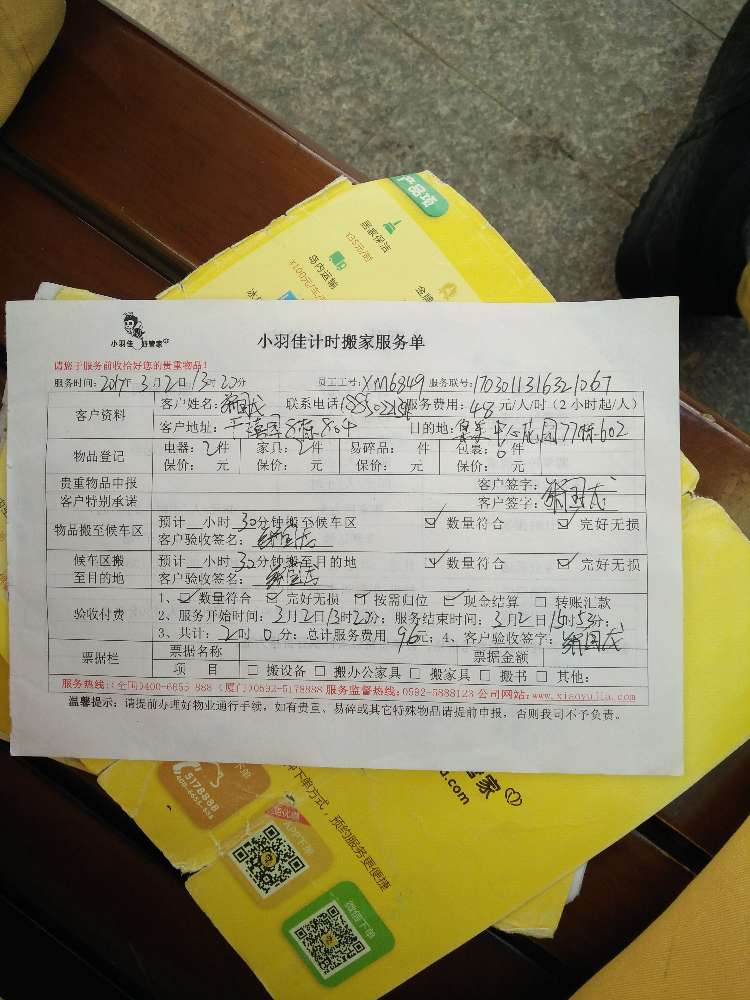 产品项
居家保洁
¥35元/时
场内运输
小羽佳 好管家
小羽佳计时搬家服务单
请您于服务前收拾好您的贵重物品!
服务时间:2017年3月2日13时20分 员工工号:XM6849 服务联号:1703011316321067
客户资料 客户姓名: 联系电话 服务费用:48元/人/时(2小时起/人)
客户地址: 8栋804 目的地: 77栋602
物品登记 电器:2件 家具:2件 易碎品: 件 包裹:0件
保价: 元 保价: 元 保价: 元 保价: 元
贵重物品申报 客户签字:
客户特别承诺 客户签字:
物品搬至候车区 预计__小时30分钟搬至候车区 ☑ 数量符合 ☑ 完好无损
客户验收签名:
候车区搬至目的地 预计__小时30分钟搬至目的地 ☑ 数量符合 ☑ 完好无损
客户验收签名:
验收付费 1、☑ 数量符合 ☑ 完好无损 ☑ 按需归位 ☑ 现金结算 □ 转账汇款
2、服务开始时间:3月2日13时20分;服务结束时间:3月2日15时53分;
3、共计:2时0分;总计服务费用96元;4、客户验收签字:
票据栏 票据名称 票据金额
项 目 □ 搬设备 □ 搬办公家具 □ 搬家具 □ 搬书 □ 其他:
服务热线:(全国)400-6655 888 (厦门)0592-5178888 服务监督热线:0592-5888123 公司网站:www.xiaoyujia.com
温馨提示:请提前办理好物业通行手续,如有贵重、易碎或其它特殊物品请提前申报,否则我司不予负责。
管家
.com
下单方式,预约服务更便捷
下单
5178888
400-6655-888
APP下单
微信下单